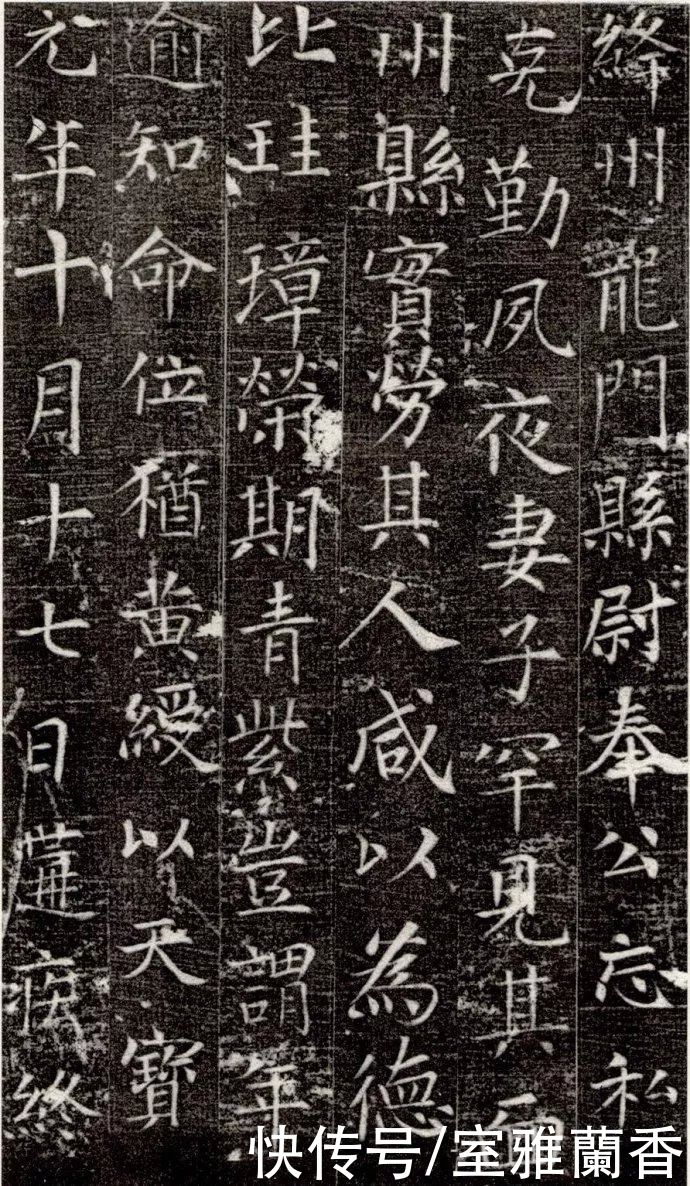 絳州龍門縣尉奉公忘私
克勤夙夜妻子罕見其
州縣實勞其人咸以為德
比珪璋榮期青紫豈謂年
逾知命位猶黄綬以天寶
元年十月十七日遘疾終
快传号/室雅蘭香